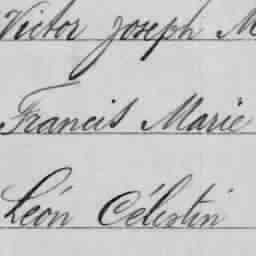 Victor Joseph M
Francis Marie
Léon Célestin